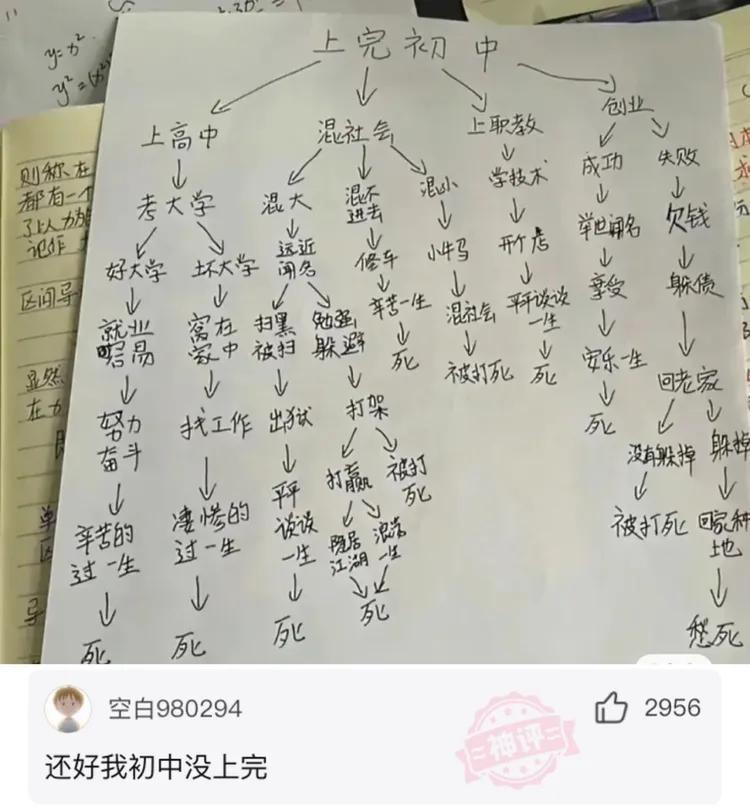 y=x².
上完初中
上高中
混社会
上职教
创业
考大学
混大
混不
进去
混小
学技术
成功
失败
好大学
坏大学
远近
闻名
修车
小牛马
开个店
举世闻名
欠钱
就业
容易
窝在
家中
扫黑
被扫
勉强
躲避
辛苦一生
混社会
平平谈谈
一生
享受
躲债
努力
奋斗
找工作
出狱
打架
死
被打死
死
安乐一生
回老家
辛苦的
过一生
凄惨的
过一生
平平
谈谈
一生
打赢
被打
死
死
没有躲掉
躲掉
隐居
江湖
浪荡
一生
被打死
回家种
地
死
死
死
死
愁死
则称在
都有一个
记作
区间导
显然
在
空白980294
神评
2956
还好我初中没上完